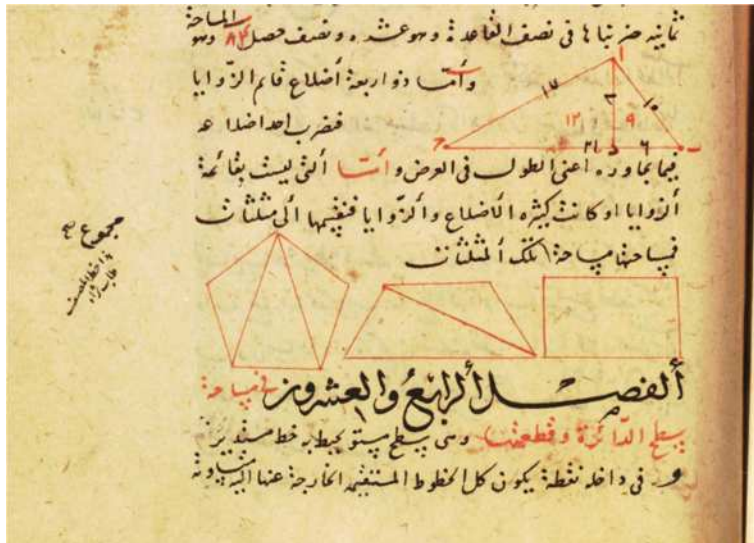 المساحة
ثمانية ضربناها في نصف القاعدة وهو عشرة ونصف فحصل ٨٤ وهو
وأما ذو اربعة أضلاع قائم الزوايا
فضرب احد اضلاعه
فيما يجاوره اعنى الطول في العرض وأما التي ليست بقائمة
الزوايا او كانت كثيرة الاضلاع والزوايا فنقسمها الى مثلثات
فمساحتها مساحة تلك المثلثات
مجموع
الفصل الرابع والعشرون في مساحة
سطح الدائرة وقطعها وهي سطح مستو يحيط به خط مستدير
و في داخله نقطة يكون كل الخطوط المستقيمة الخارجة عنها إليه متساوية